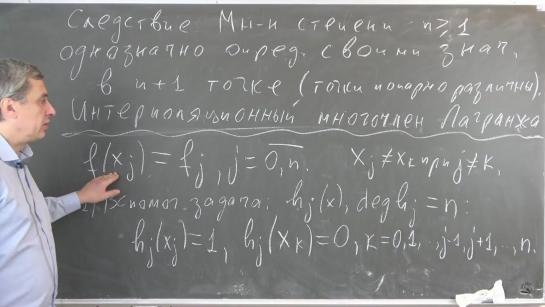 Следствие Мн-н степени n⩾1
однозначно опред. своими знач.
в n+1 точке (точки попарно различны).
Интерполяционный многочлен Лагранжа
f(xⱼ) = fⱼ, j = \overline{0,n}. xⱼ≠xₖ при j≠k.
помог. задача: hⱼ(x), deg hⱼ = n:
hⱼ(xⱼ)=1, hⱼ(xₖ)=0, k=0,1,..,j-1,j+1,..,n.